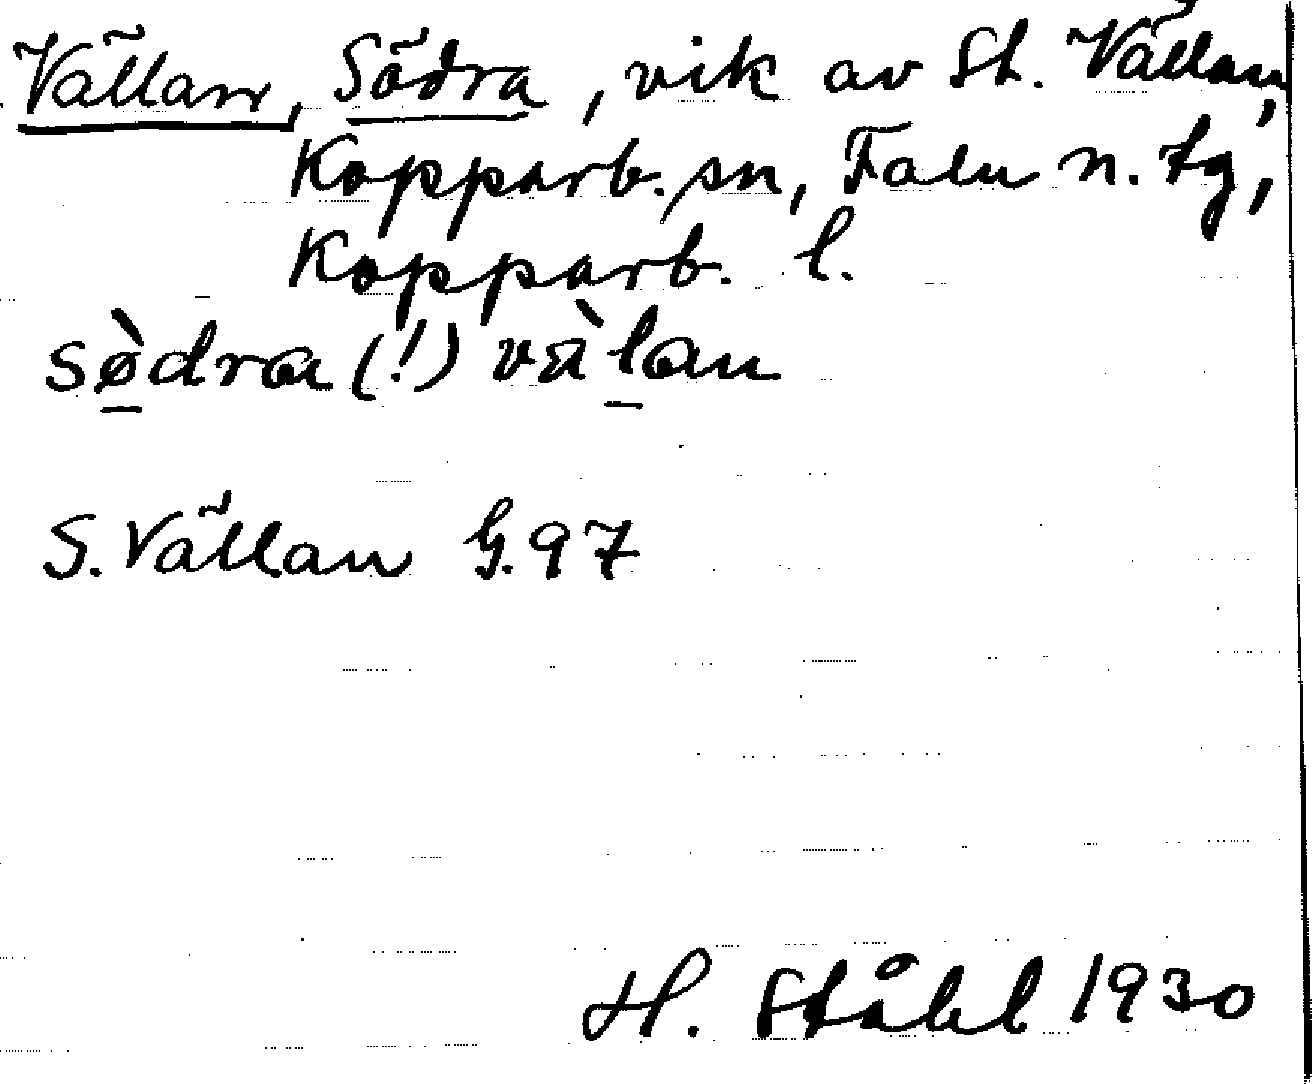 Vällan, Södra, vik av St. Vällan,
Kopparb. sn, Falu n. tg,
Kopparb. l.
sø̀dra (!) vàlan
S. Vällan G. 97
H. Ståhl 1930